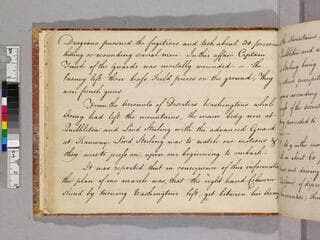 Dragoons pursued the fugitives and took about 30 prisoners
killing or wounding several more In this affair Captain
Finch of the guards was mortally wounded. — The
Enemy left three brass Field pieces on the ground, they
were french guns.
From the accounts of Deserters Washingtons whole
Army had left the mountains, the main body were at
Quibbletown and Lord Sterling with the advanced Guard
at Lord Sterling was to watch our motions &
they were to press on, upon our beginning to embark
It was reported that in consequence of this information
the plan of our march was, that the right hand
should by turning Washingtons left, get between his Army